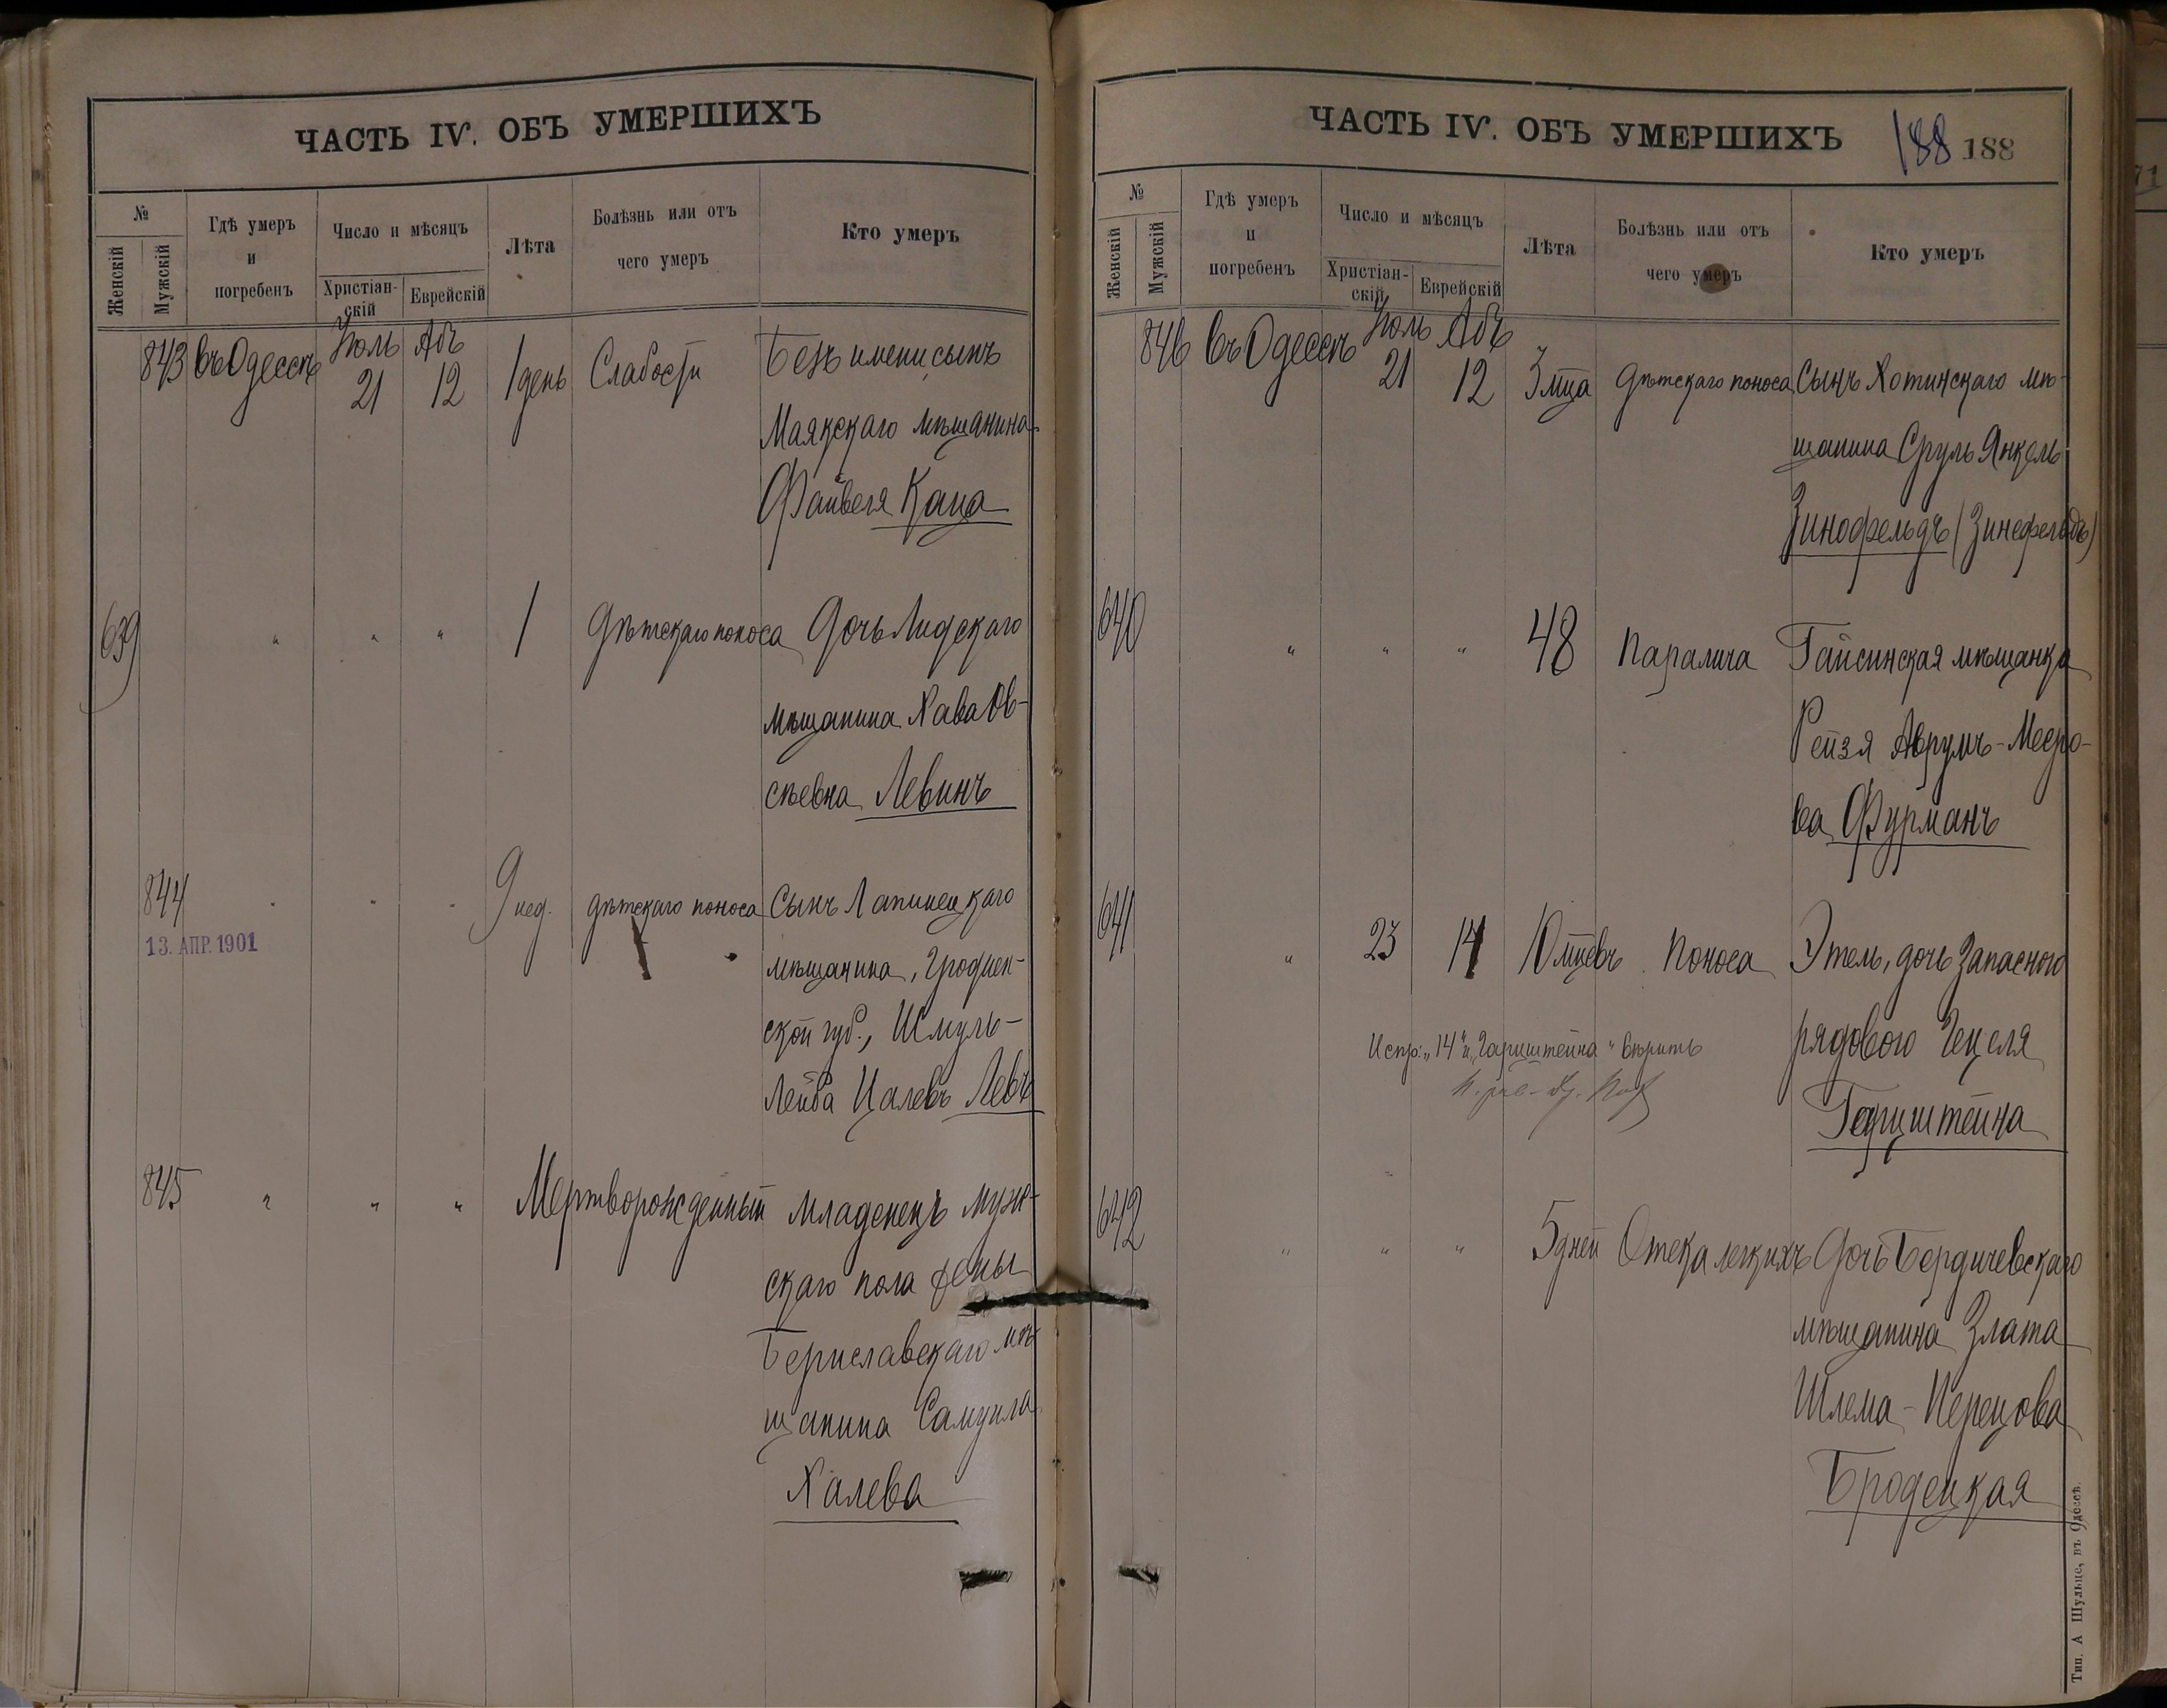 ЧАСТЬ IV. ОБЪ УМЕРШИХЪ
№
Женскій
Мужскій
Гдѣ умеръ
и
погребенъ
Число и мѣсяцъ
Христіан-
скій
Еврейскій
Лѣта
Болѣзнь или отъ
чего умеръ
Кто умеръ
843 въ Одессѣ Іюль 21 Абъ 12 1 день Слабости Безъ имени, сынъ
Маякскаго мѣщанина
Файвеля Каца
639 " " " 1 Дѣтскаго поноса Дочь Лидскаго
мѣщанина Хава Ов-
сѣевна Левинъ
844 " " " 9 нед. Дѣтскаго поноса Сынъ Лапинецкаго
13. АПР. 1901
мѣщанина, Гроднен-
ской губ., Шмуль-
Лейба Цалевъ Левъ
845 " " " Мертворожденный младенецъ муж-
скаго пола жены
Бериславскаго мѣ-
щанина Самуила
Халева
ЧАСТЬ IV. ОБЪ УМЕРШИХЪ
188 188
№
Женскій
Мужскій
Гдѣ умеръ
и
погребенъ
Число и мѣсяцъ
Христіан-
скій
Еврейскій
Лѣта
Болѣзнь или отъ
чего умеръ
Кто умеръ
846 въ Одессѣ Іюль 21 Абъ 12 3 мца Дѣтскаго поноса Сынъ Хотинскаго мѣ-
щанина Сруль Янкель
Зинофельдъ (Зинефельдъ)
640 " " " 48 Паралича Гайсинская мѣщанка
Рейзя Аврумъ-Меєро-
ва Фурманъ
641 " 23 14 10 мцевъ Поноса Этель, дочь запасного
рядового Гецеля
Испр: "14" и "Гарцштейна" вѣрить
Гарцштейна
642 " " " 5 дней Отека легкихъ Дочь Бердичевскаго
мѣщанина Злата
Шлема-Перецова
Бродецкая
Тип. А Шульце, въ Одессѣ.
71